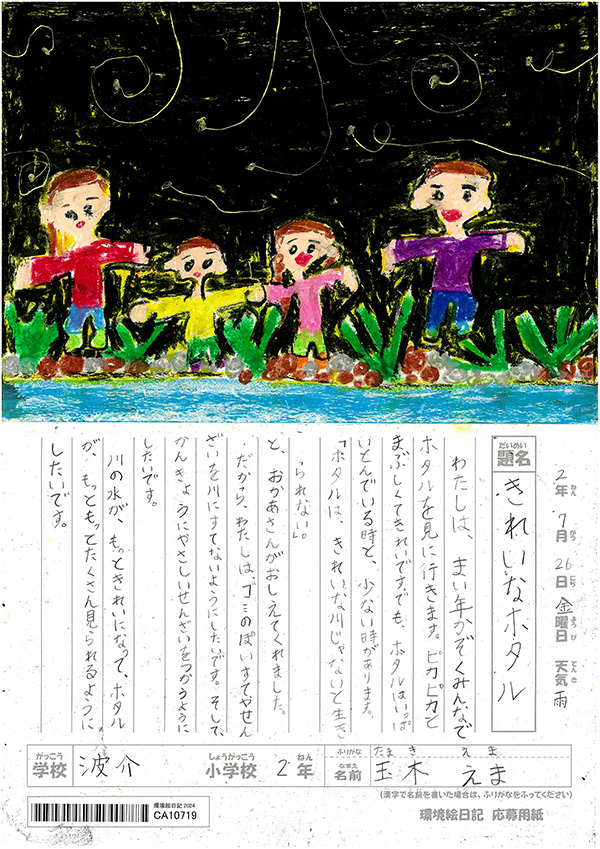 2年 7月 26日 金曜日 天気 雨
ねん がつ にち ようび てんき
だいめい
題名 きれいなホタル
わたしは、まい年かぞくみんなで
ホタルを見に行きます。ピカピカと
まぶしくてきれいです。でも、ホタルはいっぱ
いとんでいる時と、少ない時があります。
「ホタルは、きれいな川じゃないと生き
られない。」
と、おかあさんがおしえてくれました。
だから、わたしは、ゴミのぽいすてやせん
ざいを川にすてないようにしたいです。そして、
かんきょうにやさしいせんざいをつかうように
したいです。
川の水が、もっときれいになって、ホタル
が、もっともってたくさん見られるように
したいです。
がっこう しょうがっこう ねん ふりがな たまき えま
学校 波介 小学校 2年 なまえ 名前 玉木 えま
(漢字で名前を書いた場合は、ふりがなをふってください)
環境絵日記 2024
CA10719
環境絵日記 応募用紙